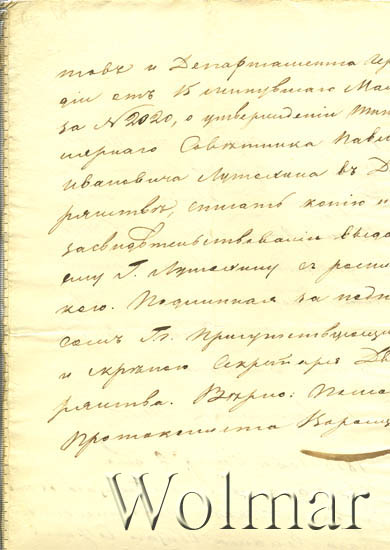 товъ и Департамента Гер
діи отъ 15 минувшаго Ма
за №2020, о утвержденіи Тит
улярнаго Совѣтника Павл
Ивановича Лутохина въ Д
рянствѣ, списать копію и
засвидѣтельствованіи выда
ему Г. Лутохину съ роспи
кою. Подлинная за подпи
сомъ Гг. Присутствующи
и скрѣпою Секретаря Дв
рянства. Вѣрно: Пом
Протоколиста
Wolmar